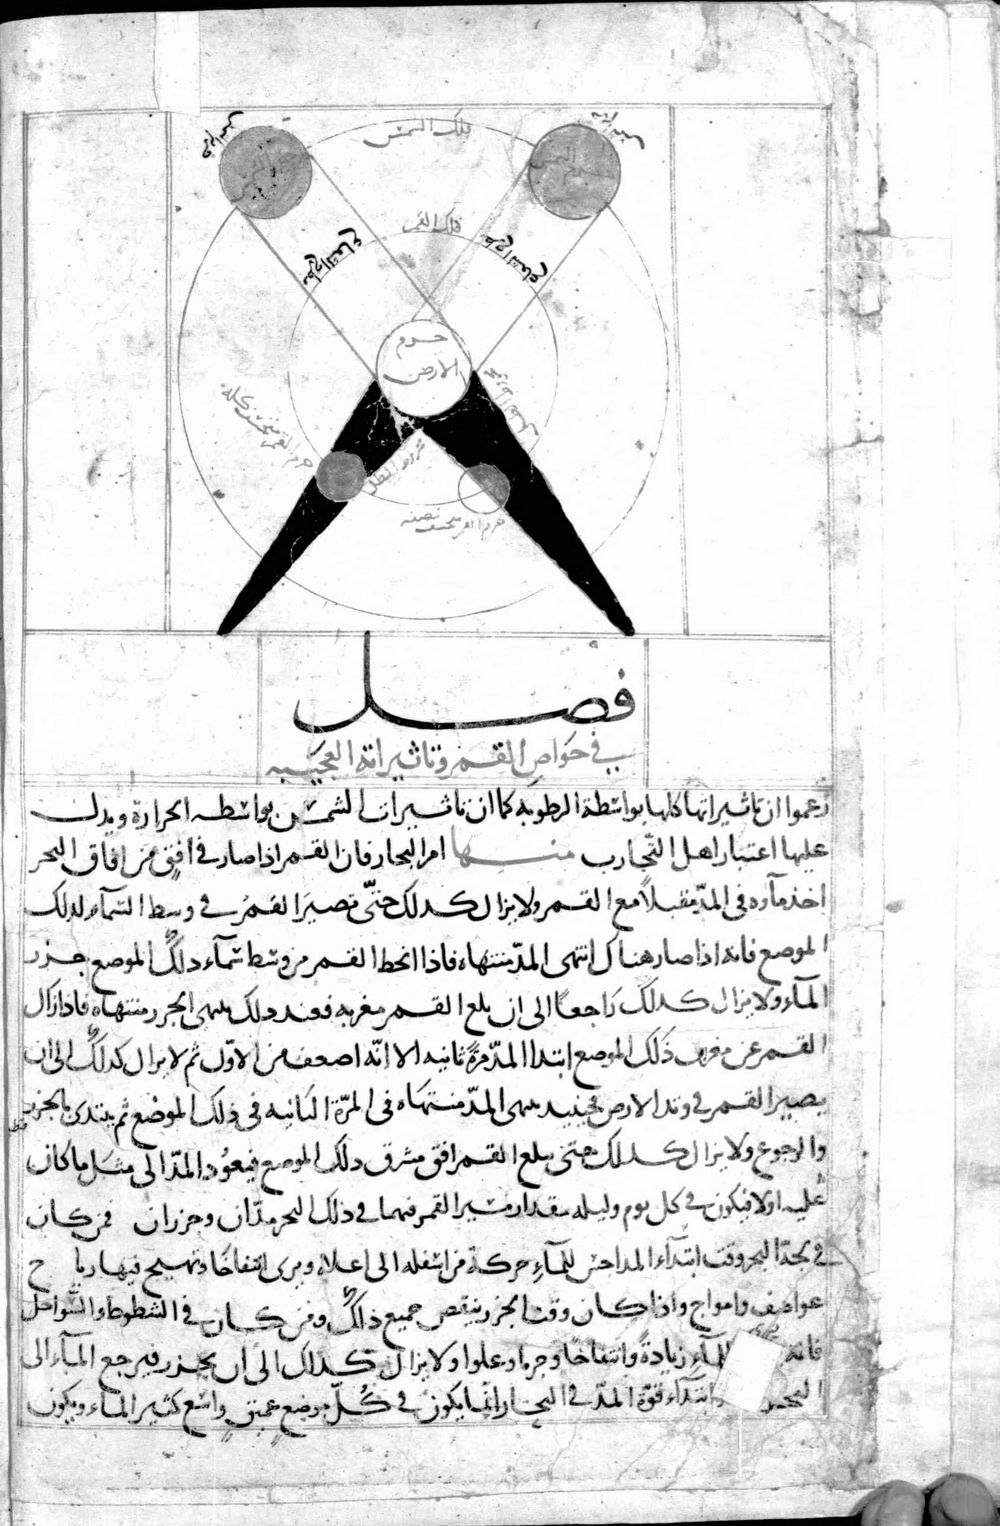 جرم الشمس
فلك الشمس
فلك القمر
مخروط الشعاع
جرم
الارض
جرم القمر منخسف كله
مخروط الظل
جرم القمر منخسف نصفه
فصل
في خواص القمر وتاثيراته العجيبه
زعموا ان تاثيراتها كلها بواسطة الرطوبة كما ان تاثيرات الشمس بواسطه الحرارة ويدل
عليها اعتبار اهل التجارب منها امر البحار فان القمر اذا صار في افق من افاق البحر
اخذ مآوه في المدّ مقبلاً مع القمر ولا يزال كذلك حتّى تصير القمر في وسط السّمآء لذلك
الموضع فانه اذا صار هناك انتهى المدّ منتهاه فاذا انحط القمر من وسط سمآء ذلك الموضع جزر
المآء ولا يزال كذلك راجعا الى ان بلغ القمر مغربه فعند ذلك ينتهى الجزر منتهاه فاذا زال
القمر عن مغرب ذلك الموضع ابتدا المدّ مرّة ثانيه الا انّه اضعف من الاوّل ثم لا يزال كذلك الى ان
يصير القمر في وتد الارض فحينيذ ينتهى المدّ منتهاه فى المرّة الثانيه فى ذلك الموضع ثم يبتدئ بالجزر
والرجوع ولا يزال كذلك حتى يبلغ القمر افق مشرق ذلك الموضع فيعود المدّ الى مثل ما كان
عليه اولا فيكون في كل يوم وليله مقدار مسير القمر فيهما في ذلك البحر مدّان وجزران فمن كان
في لجة البحر وقت ابتدآء المد احسّ للمآء حركة من اسفله الى اعلاه ويرى انتفاخا وتهيج فيها رياح
عواصف وامواج واذا كان وقت الجزر ينقص جميع ذلك ومن كان في الشطوط والسّواحل
فانه للمآء زيادةً وانتفاخا وجريا وعلوا ولا يزال كذلك الى ان يجزر فيرجع المآء الى
البحر ابتدآء قوّة المدّ في البحار انما يكون في كلّ موضع عميق واسع كثير الماء ويكون